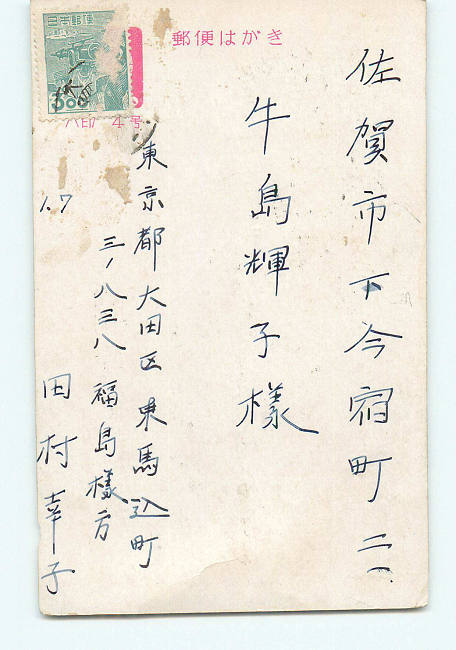 郵便はがき
日本郵便
佐賀市下今宿町二一
牛島輝子様
東京都大田区東馬込町
三ノ八三八 福島様方
田村幸子
1.7